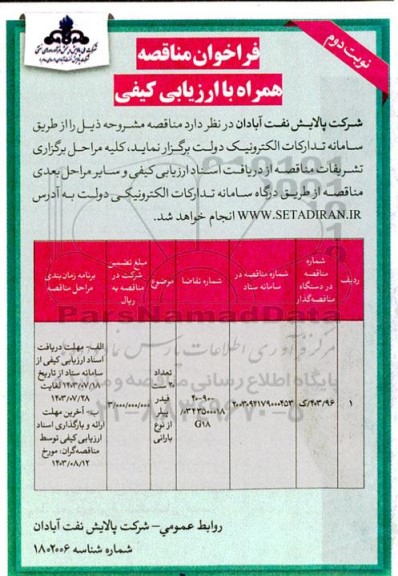 نوبت دوم
فراخوان مناقصه
همراه با ارزیابی کیفی
شرکت پالایش نفت آبادان در نظر دارد مناقصه مشروحه ذیل را از طریق
سامانه تدارکات الکترونیک دولت برگزار نماید، کلیه مراحل برگزاری
تشریفات مناقصه از دریافت اسناد ارزیابی کیفی و سایر مراحل بعدی
مناقصه از طریق درگاه سامانه تدارکات الکترونیکی دولت به آدرس
WWW.SETADIRAN.IR انجام خواهد شد.
ردیف
شماره
مناقصه
در دستگاه
مناقصه‌گذار
شماره مناقصه در
سامانه ستاد
شماره تقاضا
موضوع
مبلغ تضمین
شرکت در
مناقصه به
ریال
برنامه زمان بندی
مراحل مناقصه
۱
۴۰۳/۹۶/ک
۲۰۰۳۰۹۲۱۷۹۰۰۰۴۵۳
۴۰-۹۰-
۸۳۲۳۵۰۰۰۱۸
G18
تعداد
هشت
فیدر
پیلر
از نوع
بارانی
۳/۰۰۰/۰۰۰/۰۰۰
الف- مهلت دریافت
اسناد ارزیابی کیفی از
سامانه ستاد از تاریخ
۱۴۰۳/۰۷/۱۸ لغایت
۱۴۰۳/۰۷/۲۸
ب- آخرین مهلت
ارائه و بارگذاری اسناد
ارزیابی کیفی توسط
مناقصه‌گران: مورخ
۱۴۰۳/۰۸/۱۲
ParsNamadData
پایگاه اطلاع رسانی مناقصه و
روابط عمومی- شرکت پالایش نفت آبادان
شماره شناسه ۱۸۰۲۰۰۶